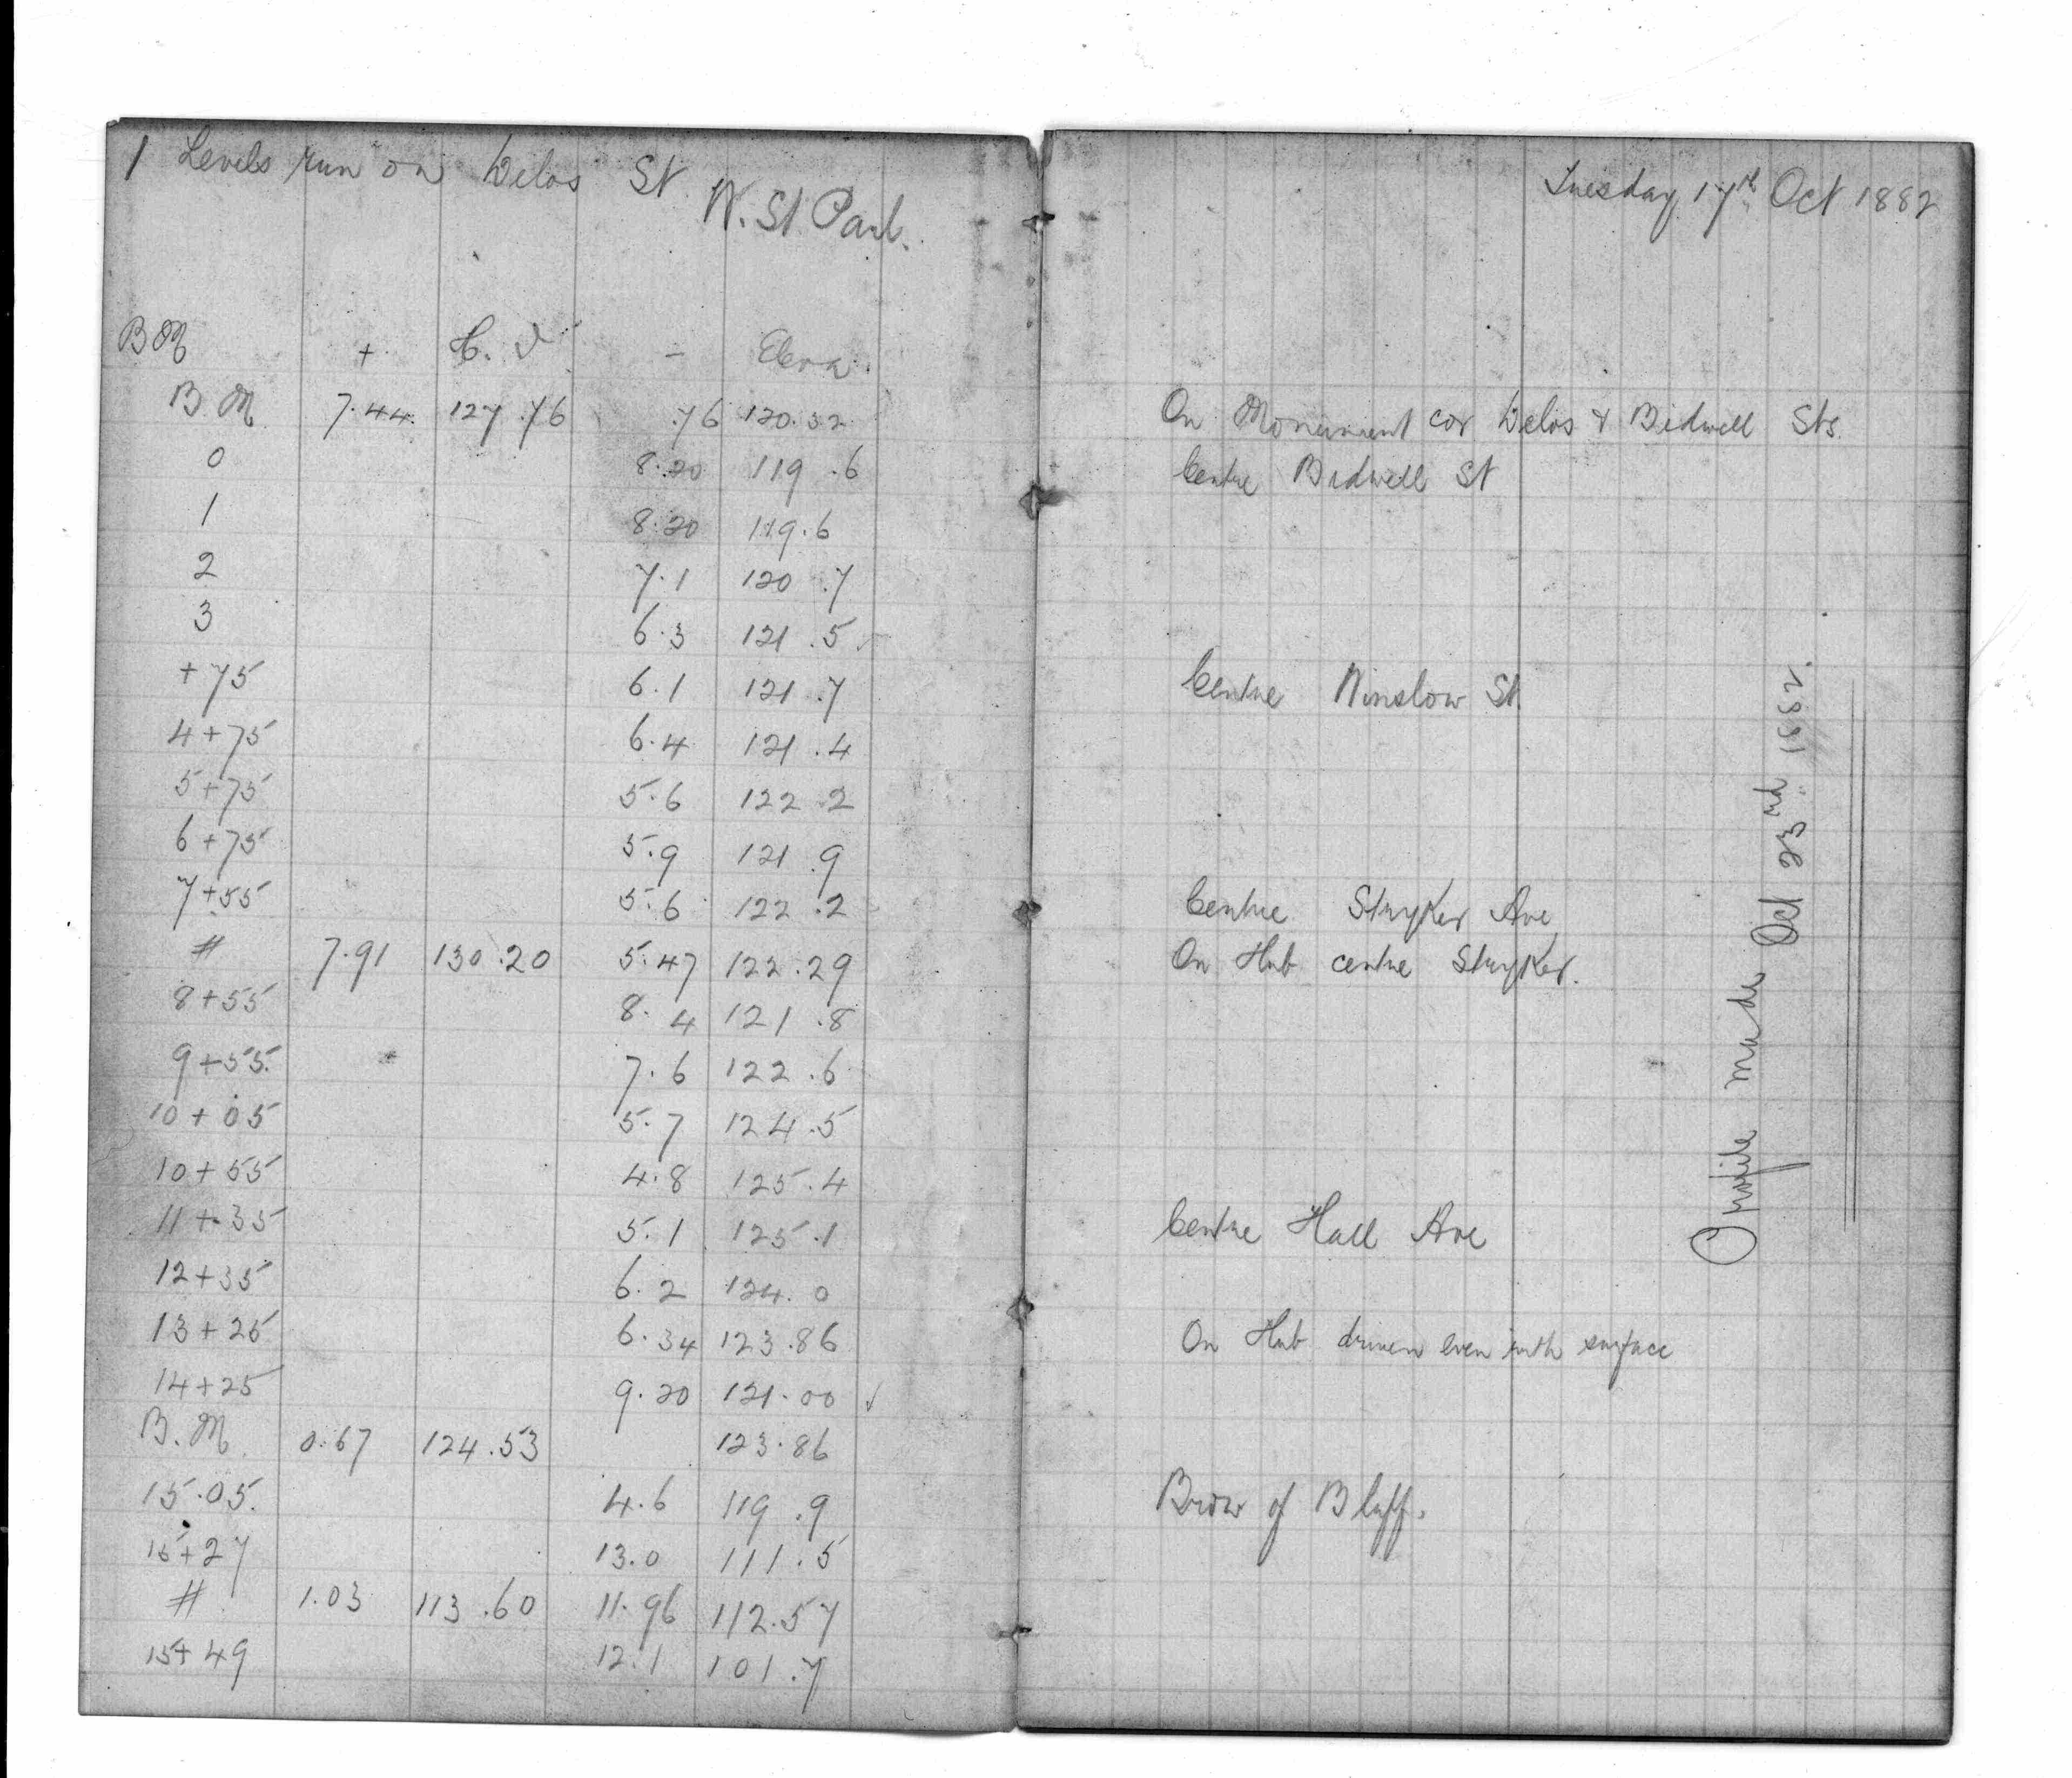 1 Levels run on Delos St W. St Paul.
BM + H. I - Eleva.
B.M 7.44 127.76 .76 120.32
0 8.20 119.6
1 8.20 119.6
2 7.1 120.7
3 6.3 121.5
+75 6.1 121.7
4+75 6.4 121.4
5+75 5.6 122.2
6+75 5.9 121.9
7+55 5.6 122.2
# 7.91 130.20 5.47 122.29
8+55 8.4 121.8
9+55 7.6 122.6
10+05 5.7 124.5
10+55 4.8 125.4
11+35 5.1 125.1
12+35 6.2 124.0
13+25 6.34 123.86
14+25 9.20 121.00 ✓
B.M. 0.67 124.53 123.86
15.05. 4.6 119.9
15+27 13.0 111.5
# 1.03 113.60 11.96 112.57
15+49 12.1 101.7
Tuesday 17th Oct 1882
On Monument cor Delos & Bidwell Sts.
Centre Bidwell St
Centre Winslow St.
Centre Stryker Ave
On Hub centre Stryker.
Centre Hall Ave
On Hub driven even with surface
Brow of Bluff.
Profile made Oct 23rd 1882.